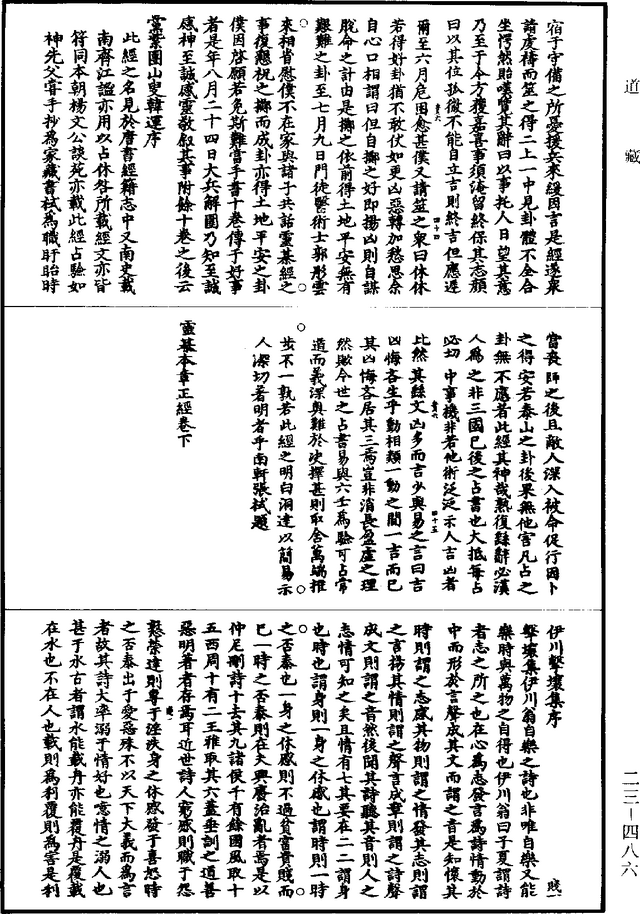 道藏
宿子守備之所憂援兵來緩因言是經遂衆
請虔禱而筮之得二上一中見卦體不全合
坐愕然貽嘆質其辭曰以事托人日望其意
乃至于今方獲嘉喜事須淹留終保其志顏
曰以其位孤微不能自立吉則終吉但應遲
爾至六月危困愈甚僕又請筮之衆曰休休
若得好卦猶不敢仗如更凶惡轉加愁思余
自心口相謂曰但自擲之好即揚凶則自謀
脫命之計由是擲之依前得土地平安無有
艱難之卦至七月九日門徒醫術士郭彤雲
來相省慰僕不在家與諸子共話靈棊經之
事復懇祝之擲而成卦亦得土地平安之卦
僕因啓願若免斯難當手書十卷傳于好事
者是年八月二十四日大兵解圍乃知至誠
感神至誠感靈敬叙其事附餘十卷之後云
靈棊園山叟韓運序
此經之名見於唐書經籍志中又南史載
南齊江謐亦用以占休咎所載經文亦皆
符同本朝楊文公談苑亦載此經占驗如
神先父嘗手抄爲家藏書栻爲職盱眙時
當喪師之後且敵人深入被命促行因卜
之得安若泰山之卦後果無他害凡占之
卦無不應者此經其神哉熟復繇辭必漢
人爲之非三國已後之占書也大抵每占
必切中事機非若他術泛泛示人吉凶者
比然其繇文凶多而言少與易之言曰吉
凶悔吝生乎動相類一動之間一吉而已
其凶悔吝居其三焉豈非消長盈虛之理
然歟今世之占書易與六壬爲驗可占常
道而義深奥難於決擇甚則取舍萬端推
步不一孰若此經之明白洞達以簡易示
人深切著明者乎南軒張栻題
靈棊本章正經卷下
伊川擊壤集序 賤一
擊壤集伊川翁自樂之詩也非唯自樂又能
樂時與萬物之自得也伊川翁曰子夏謂詩
者志之所之也在心爲志發言爲詩情動於
中而形於言聲成其文而謂之音是知懷其
時則謂之志感其物則謂之情發其志則謂
之言揚其情則謂之聲言成章則謂之詩聲
成文則謂之音然後聞其詩聽其音則人之
志情可知之矣且情有七其要在二二謂身
也時也謂身則一身之休慼也謂時則一時
之否泰也一身之休慼則不過貧富貴賤而
已一時之否泰則在夫興廢治亂者焉是以
仲尼刪詩十去其九諸侯千有餘國風取十
五西周十有二王雅取其六蓋垂訓之道善
惡明著者存焉耳近世詩人窮慼則職于怨
懟榮達則專于淫泆身之休慼發于喜怒時
之否泰出于愛惡殊不以天下大義而爲言
者故其詩大率溺于情好也噫情之溺人也
甚于水古者謂水能載舟亦能覆舟是覆載
在水也不在人也載則爲利覆則爲害是利
二三—四八六